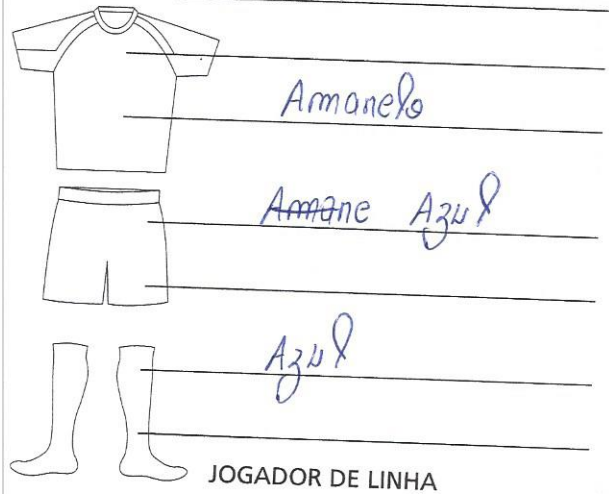 Amarelo
Amare Azul
Azul
JOGADOR DE LINHA